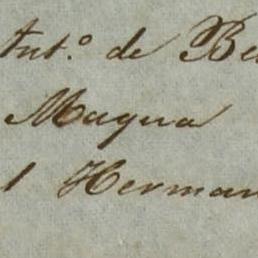 Ant.º de Be
Magua
l Herman